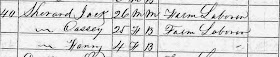 40 Sherard Jack 26 M M Farm Laborer
" Cassey 25 F B Farm Laborer
" Fanny 4 F B "